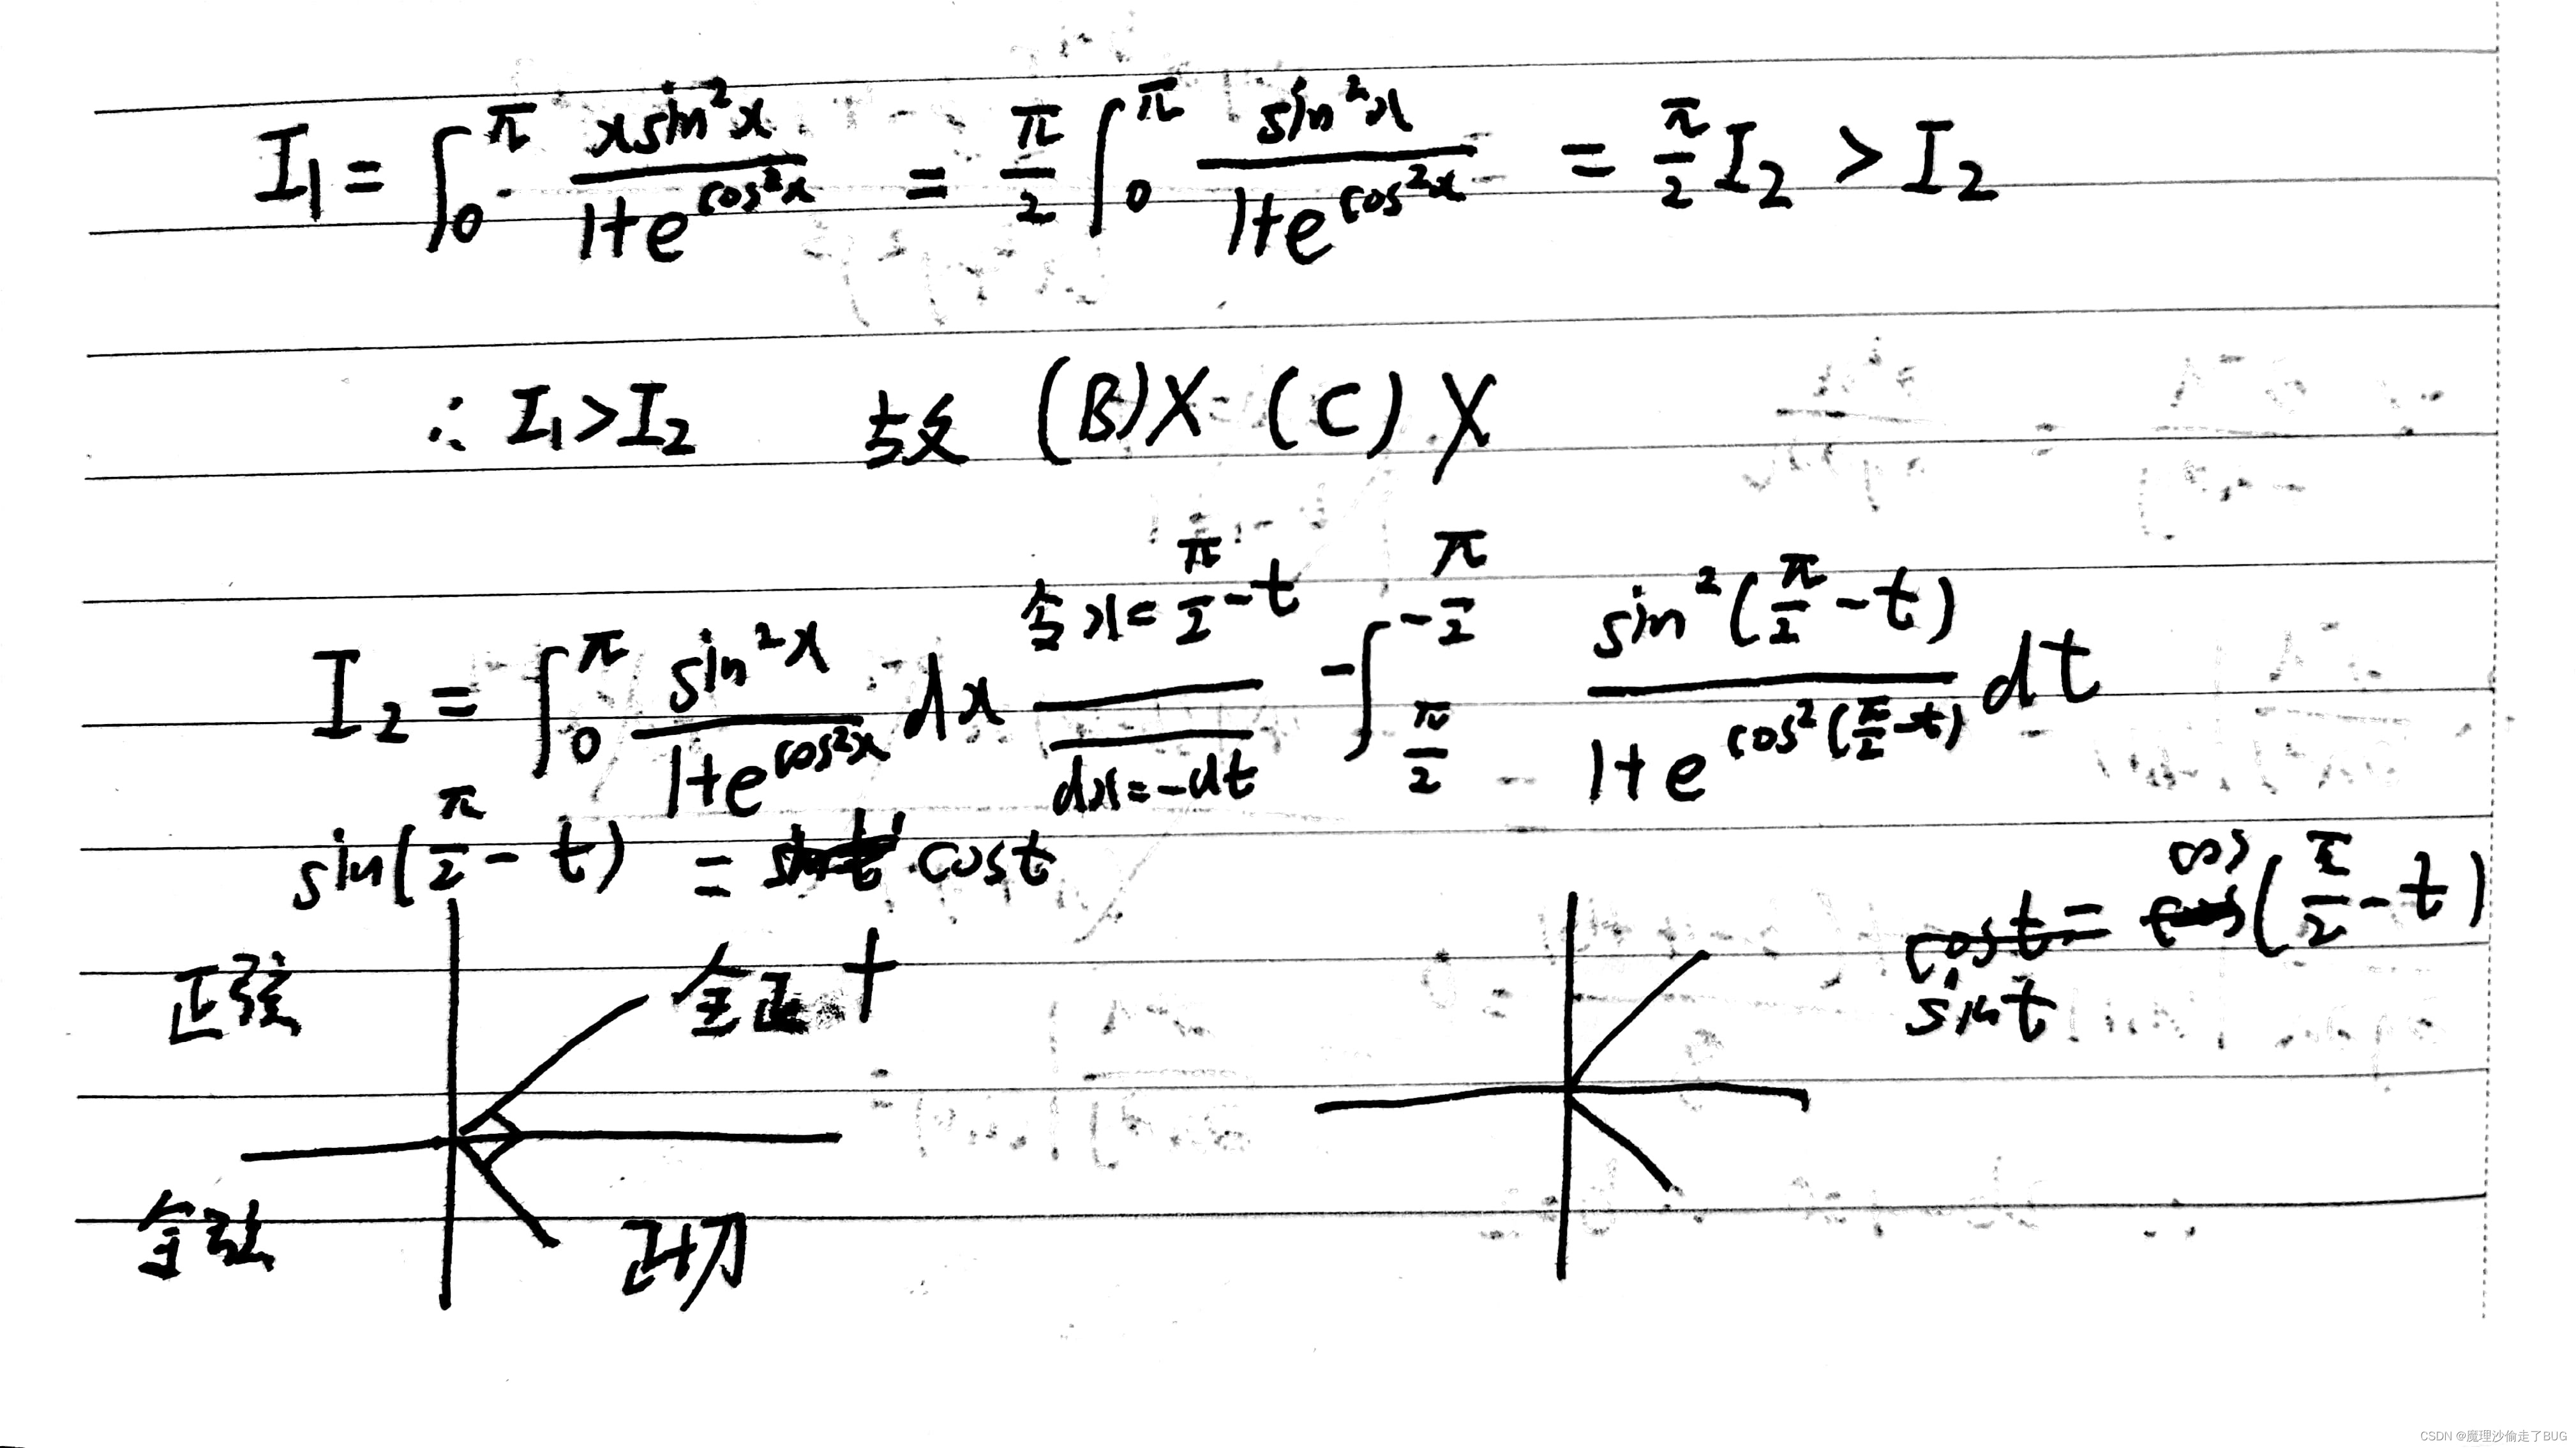 I₁ = ∫₀^π xsin²x / 1+e^(cos²x) = π/2 ∫₀^π sin²x / 1+e^(cos²x) = π/2 I₂ > I₂
∴ I₁>I₂ 故 (B)X (C)X
I₂ = ∫₀^π sin²x / 1+e^(cos²x) dx 令x=π/2-t dx=-dt -∫_(π/2)^(-π/2) sin²(π/2-t) / 1+e^(cos²(π/2-t)) dt
sin(π/2-t) = cost
cost = cos(π/2-t)
sint
正弦 全正 +
余弦 正切
CSDN @魔理沙偷走了BUG